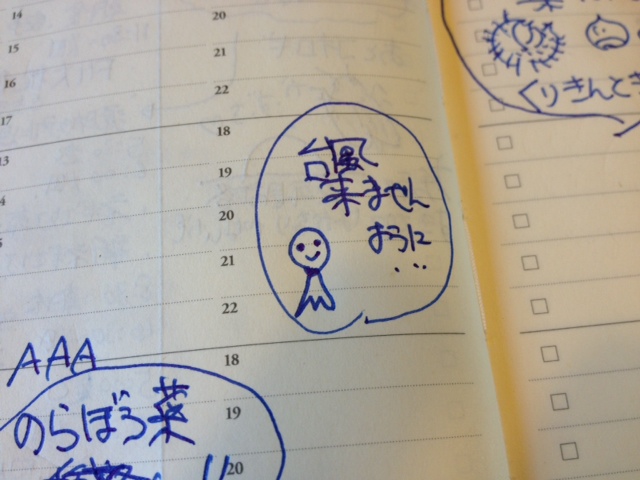 14
15
16
17
13
20
21
22
18
19
20
21
22
18
19
20
くりきんとき
台風
来ません
ように
...
AAA
のらぼう菜